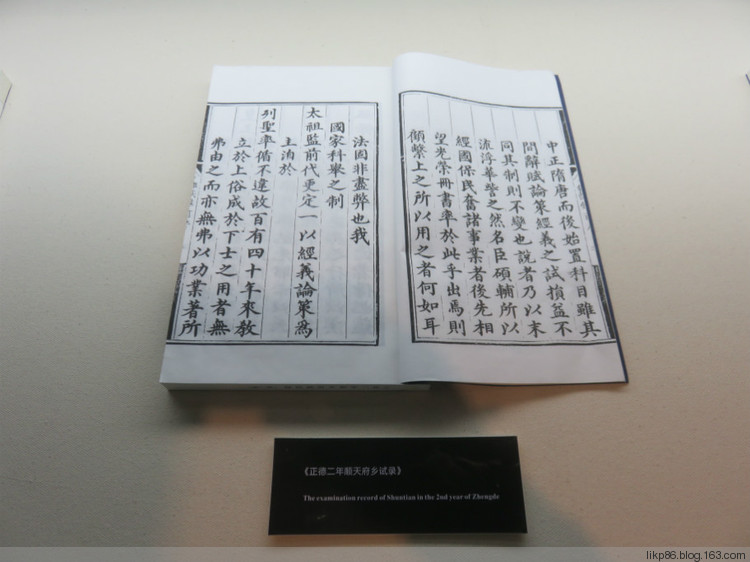 中正隋唐而後始置科目雖其
間辭賦論策經義之試損益不
同其制則不變也說者乃以末
流浮華訾之然名臣碩輔所以
經國保民奮諸事業者後先相
望光榮冊書率於此乎出焉則
顧繫上之所以用之者何如耳
法固非盡弊也我
國家科舉之制
太祖監前代更定一以經義論策為
上洎於
列聖率循不違故百有四十年來教
立於上俗成於下士之用者無
弗由之而亦無弗以功業著所
《正德二年顺天府乡试录》
The examination record of Shuntian in the 2nd year of Zhengde
likp86.blog.163.com